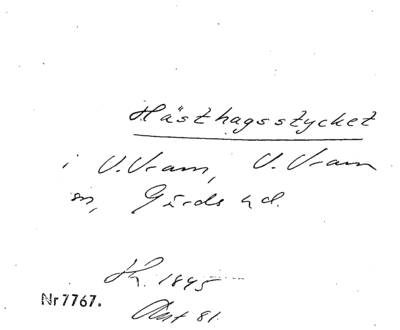 Hästhagsstycket
i V. Vram, V. Vram
sn, Gärds hd.
Th. 1895
Nr 7767.
81.